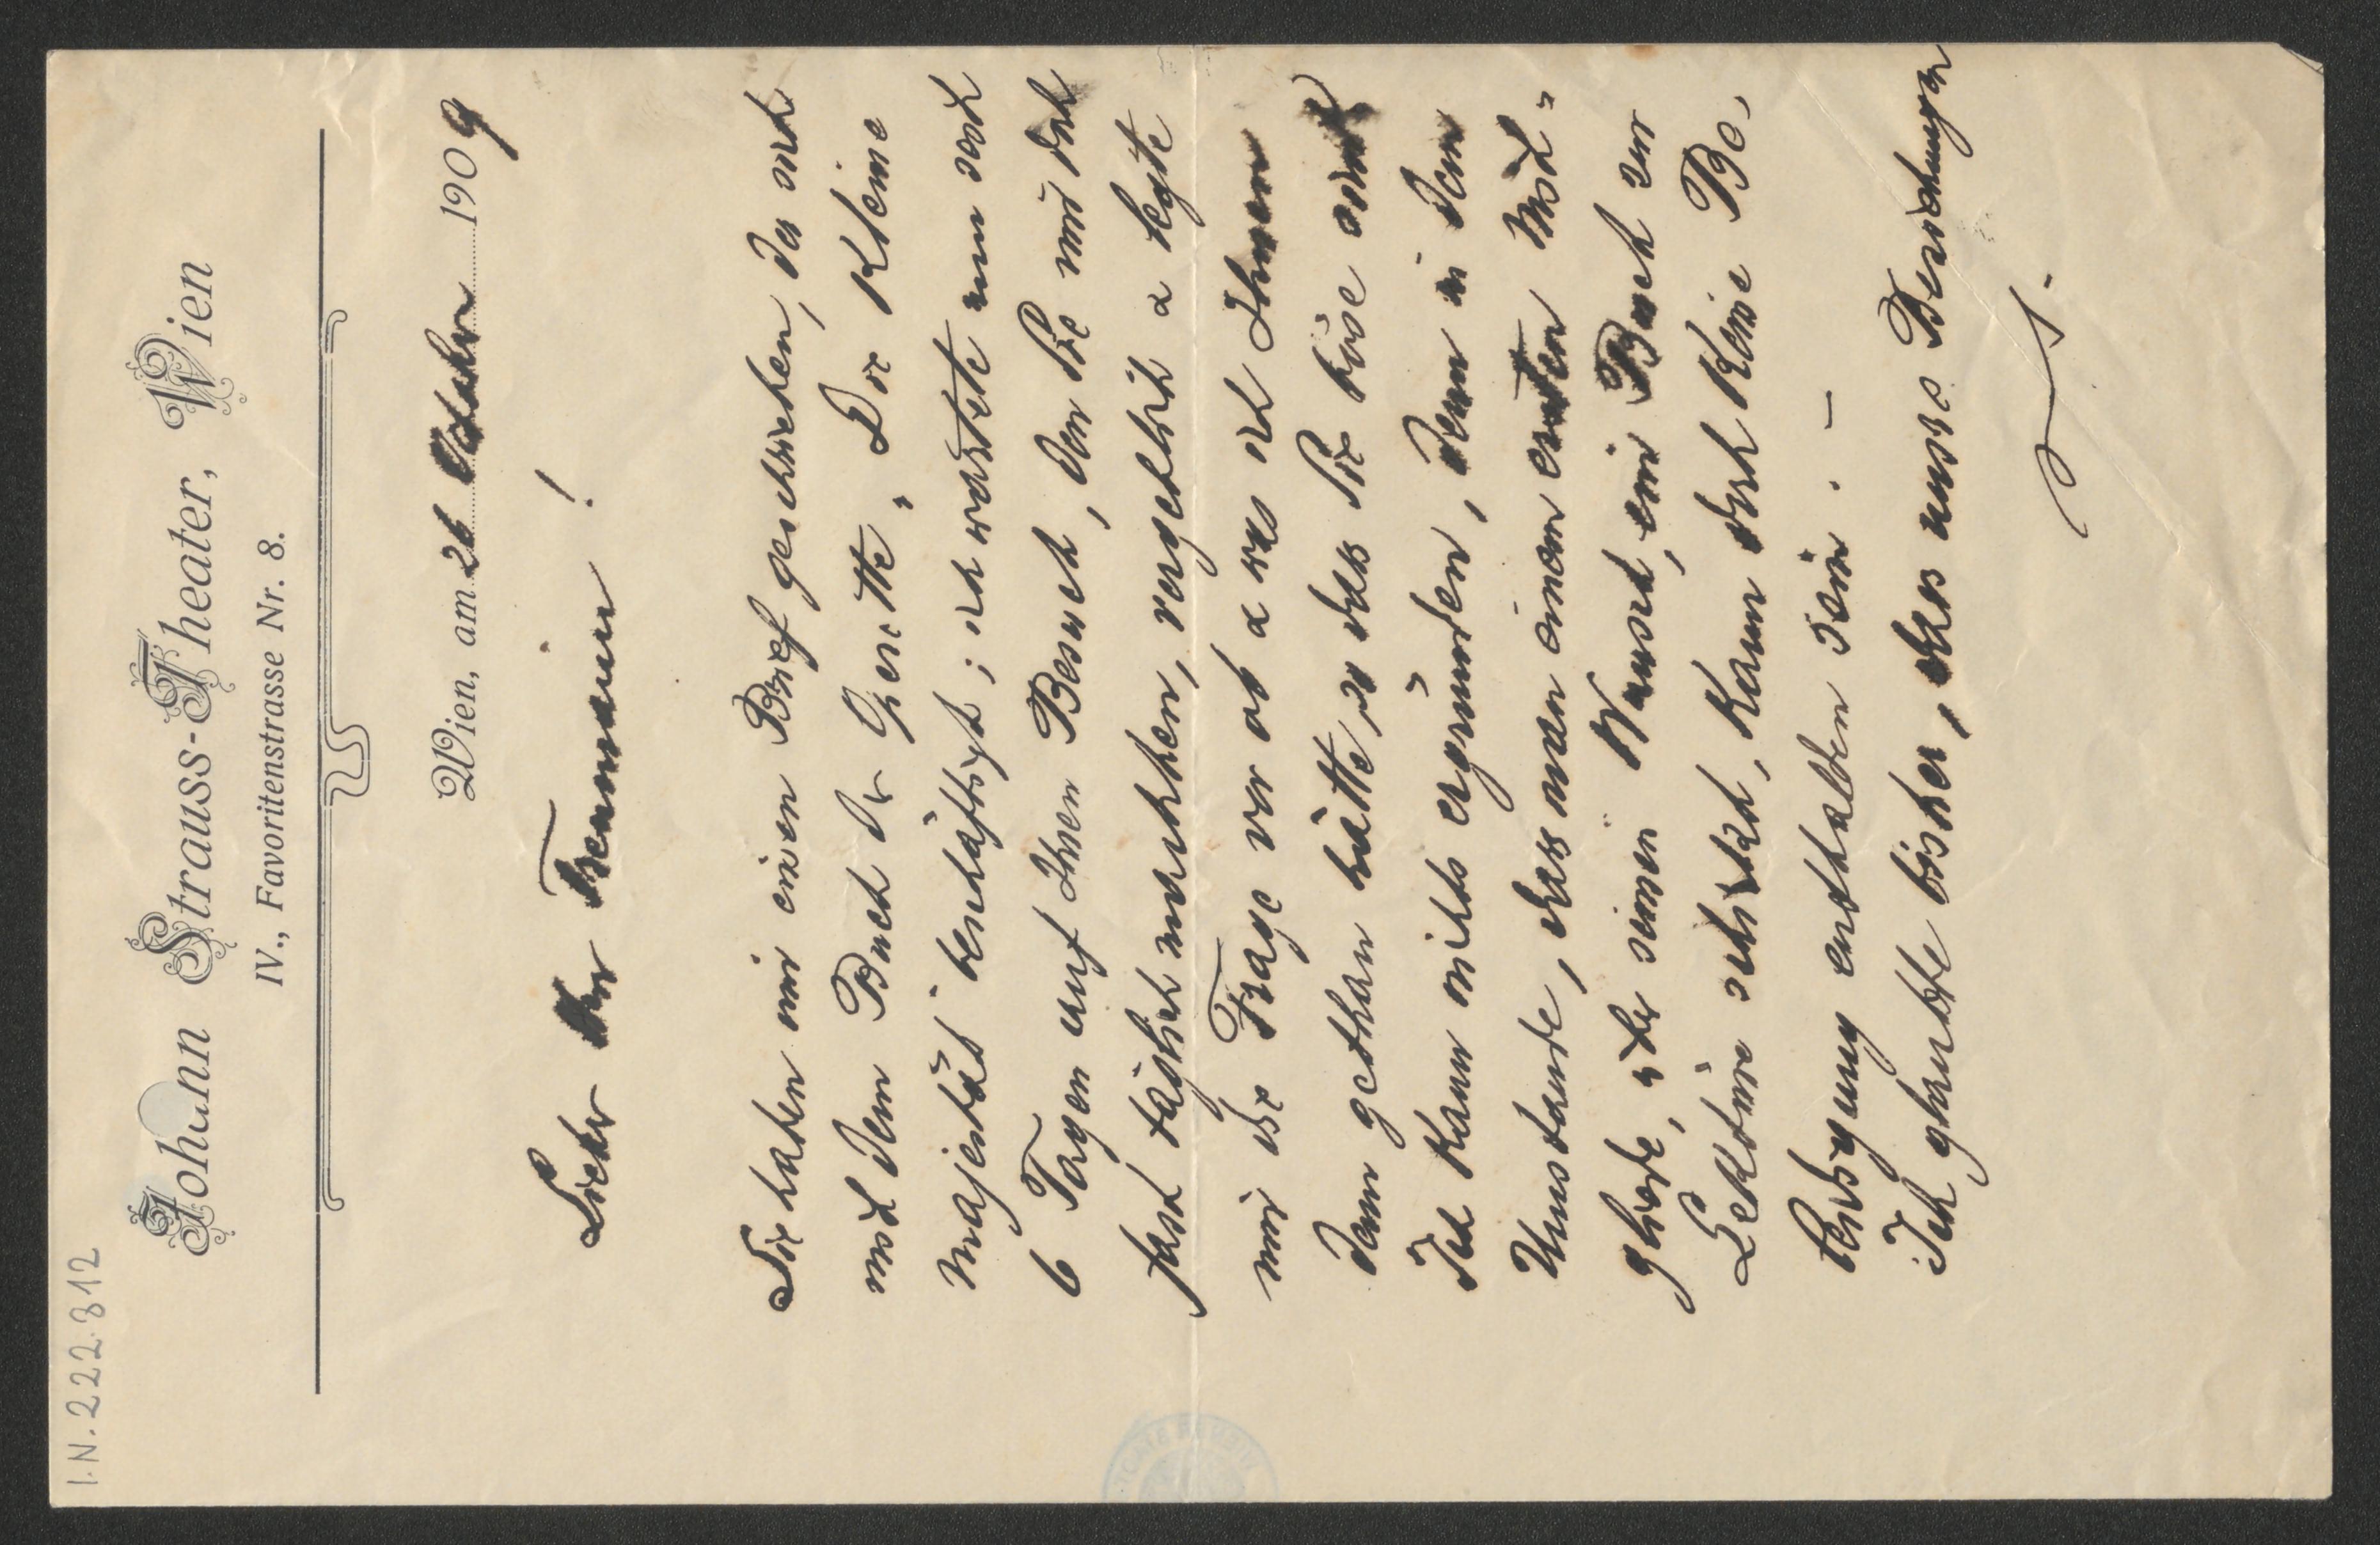 I.N. 222.812
Johann Strauss-Theater, Wien
IV., Favoritenstrasse Nr. 8.
Wien, am 26 October 1909
Lieber Dr Tennmann!
Sie haben mir einen Brief geschrieben, der sich
mit dem Buch Dr Genette „Die Kleine
Majestät“ beschäftigt; ich wartete nun seit
6 Tagen auf Ihren Besuch, den Sie mir doch
fast täglich machten, vergeblich & legte
mir die Frage vor ob & was ich Ihnen
denn gethan hätte, so dass Sie böse sind
Ich kann nichts ergründen, denn in dem
Umstande, dass man einem ersten Mit-
gliede, oder seinem Wunsch, ein Buch zur
Lektüre schickt, kann doch keine Be-
leidigung enthalten sein. –
Ich glaubte bisher, dass unsre Beziehungen